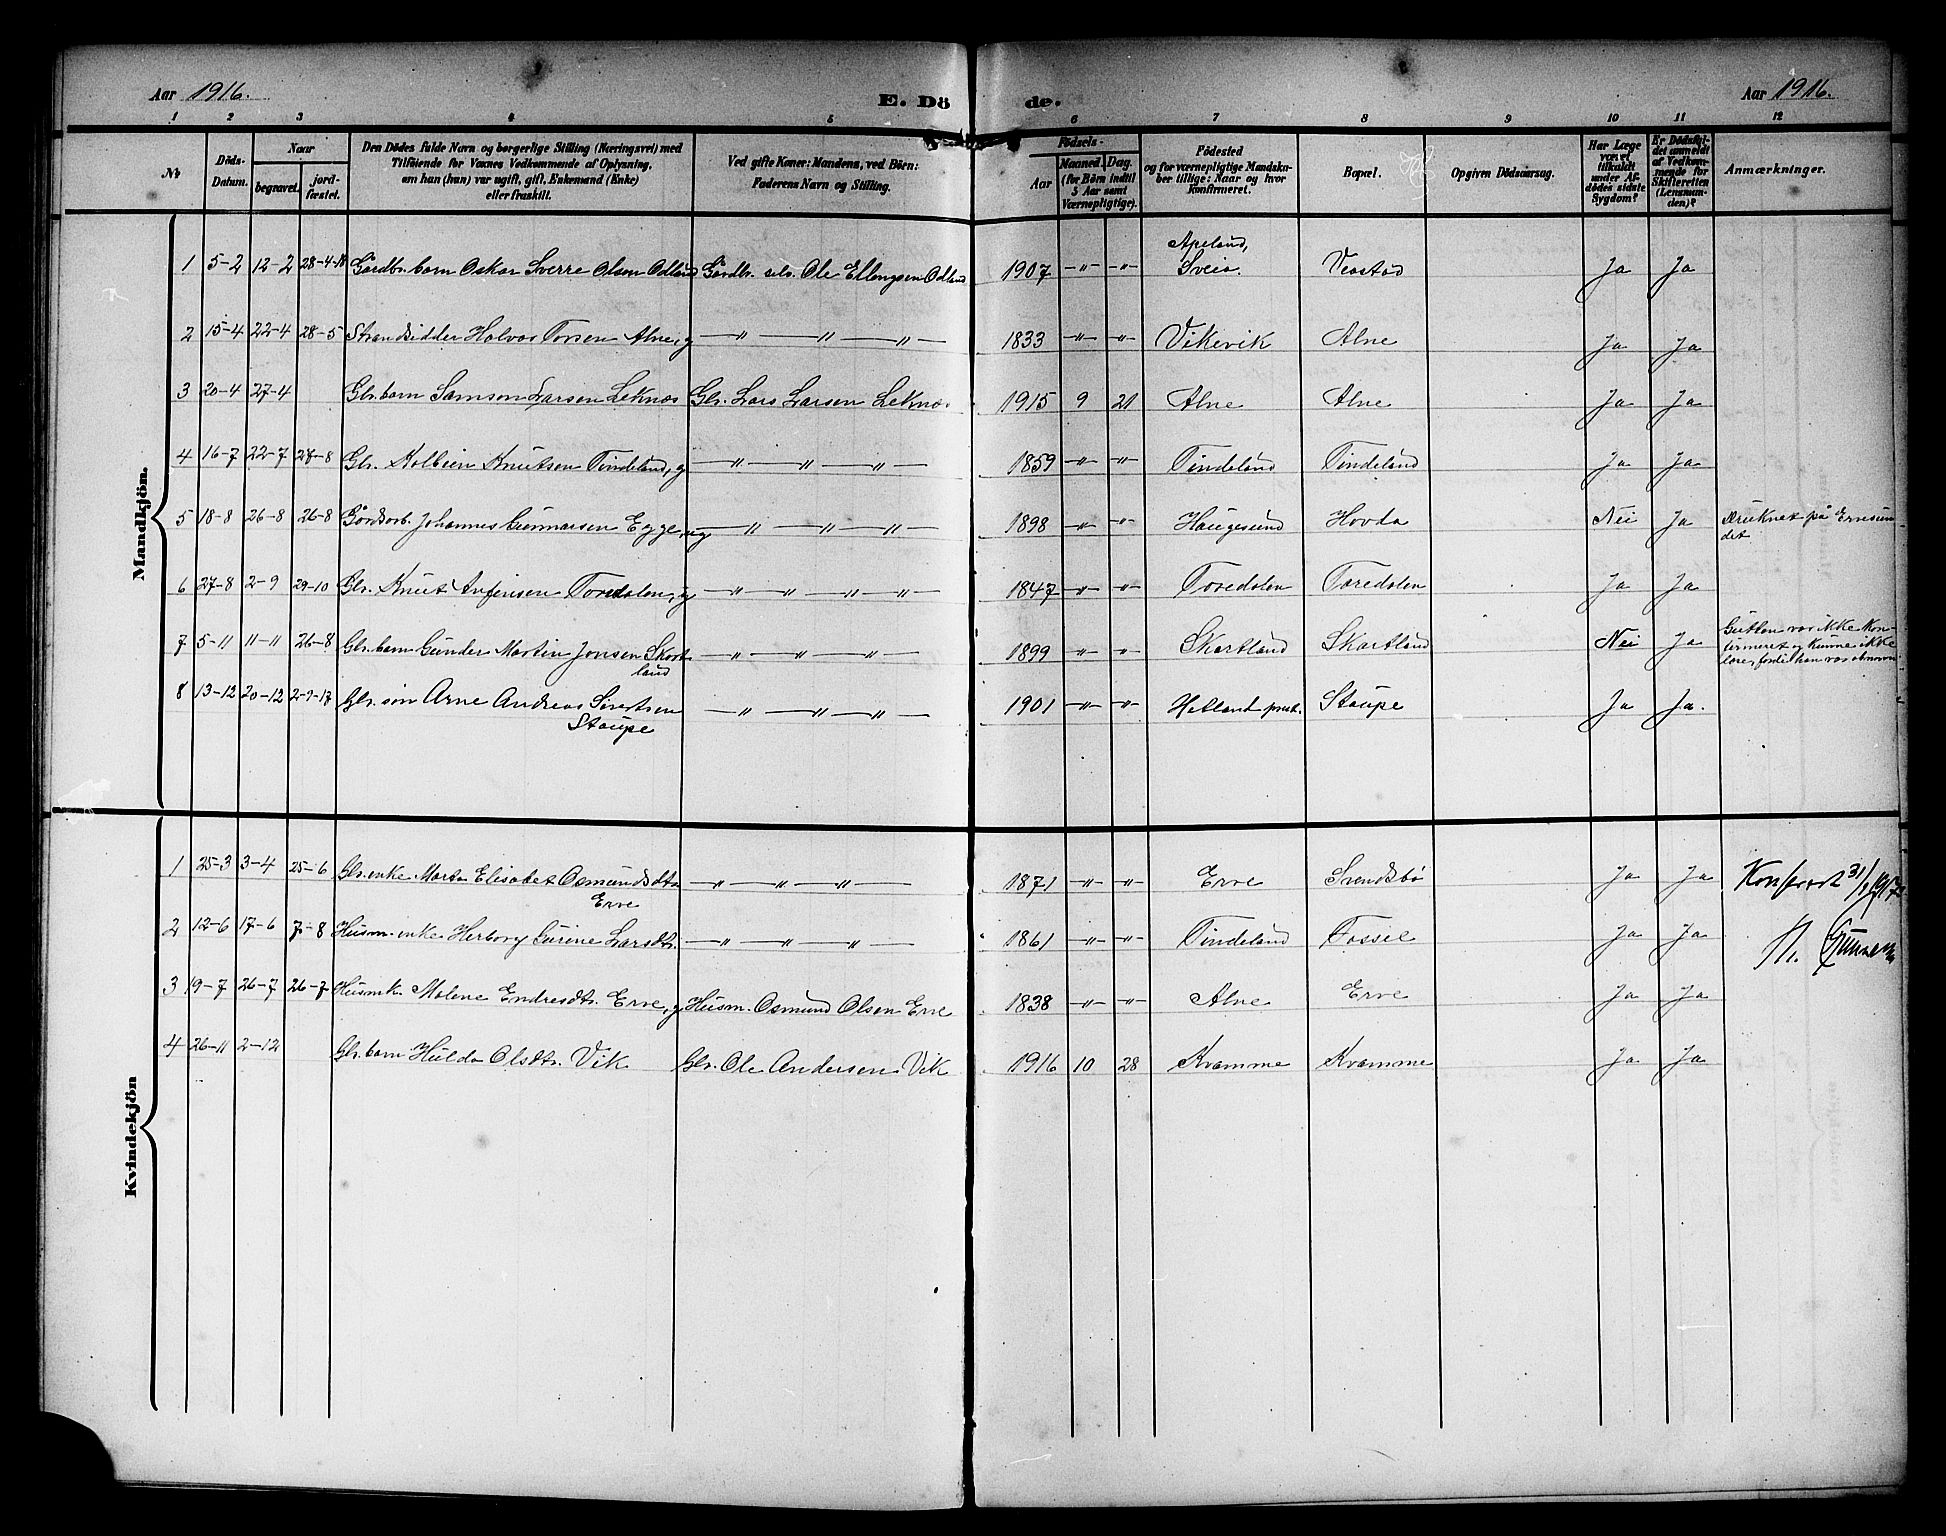 Aar 1916. E. Dö de. Aar 1916.
1 2 3 4 5 6 7 8 9 10 11 12
No
Döds-Datum.
Naar
begravet.
jord-fæstet.
Den Dödes fulde Navn og borgerlige Stilling (Næringsvei) med
Tilföiende for Voxnes Vedkommende af Oplysning,
om han (hun) var ugift, gift, Enkemand (Enke)
eller fraskilt.
Ved gifte Koner: Mandens, ved Börn:
Faderens Navn og Stilling.
Födsels-
Aar
Maaned. Dag.
(for Börn indtil
5 Aar samt
Værnepligtige).
Födested
og for værnepligtige Mandska-
ber tillige: Naar og hvor
konfirmeret.
Bopæl.
Opgiven Dödsaarsag.
Har Læge
været
tilkaldt
under Af-
dödes sidste
Sygdom?
Er Dödsfal-
det anmeldt
af Vedkom-
mende for
Skifteretten
(Lensman-
den)?
Anmærkninger.
Mandkjön.
1 5-2 12-2 28-4-18 Gårdbr. barn Oskar Sverre Olson Odland Gårdbr. selv. Ole Ellengsen Odland 1907 -"- -"- Apeland, Sveio. Veastad Ja Ja
2 15-4 22-4 28-5 Strandsidder Halvor Torsen Alne, g -"- " -"- 1833 -"- -"- Vikevik Alne Ja Ja
3 20-4 27-4 Gbr. barn Samson Larsen Leknes Gbr. Lars Larsen Leknes 1915 9 21 Alne Alne Ja Ja
4 16-7 22-7 27-8 Gbr. Kolbein Knutsen Tindeland, g -"- " -"- 1859 -"- -"- Tindeland Tindeland Ja Ja
5 18-8 26-8 26-8 Gårdsarb. Johannes Gunnarsen Egge, ug -"- " -"- 1898 -"- -"- Haugesund Hovda Nei Ja Druknet på Ervesun
det
6 27-8 2-9 29-10 Gbr. Knut Anfinsen Toredalen, g -"- " " -"- 1847 -"- -"- Toredalen Toredalen Ja Ja
7 5-11 11-11 26-8 Gbr. barn Gunder Martin Jonsen Skart
land -"- " -"- 1899 -"- -"- Skartland Skartland Nei Ja Gutten var ikke kon-
firmeret og kunne ikke
lære, fordi han var abnorm
8 13-12 20-12 Gbr. søn Arne Andreas Sivertsen
Staupe -"- " -"- 1901 -"- -"- Hetland prest. Staupe Ja Ja.
Kvindekjön
1 25-3 3-4 25-6 Gbr. enke Marta Elisabet Osmundsdtr.
Erve -"- " -"- 1871 -"- -"- Erve Svendsbø Ja Ja Konferert 31/1 1917
2 12-6 17-6 7-8 Husm. enke Herborg Surine Larsdtr. -"- " -"- 1861 -"- -"- Tindeland Fosse Ja Ja
3 19-7 26-7 26-7 Husmk. Malene Endresdtr. Erve, g Husm. Osmund Olsen Erve 1838 -"- -"- Alne Erve Ja Ja
4 26-11 2-12 Gbr. barn Hulda Olsdtr. Vik Gbr. Ole Andersen Vik 1916 10 28 Kvamme Kvamme Ja Ja